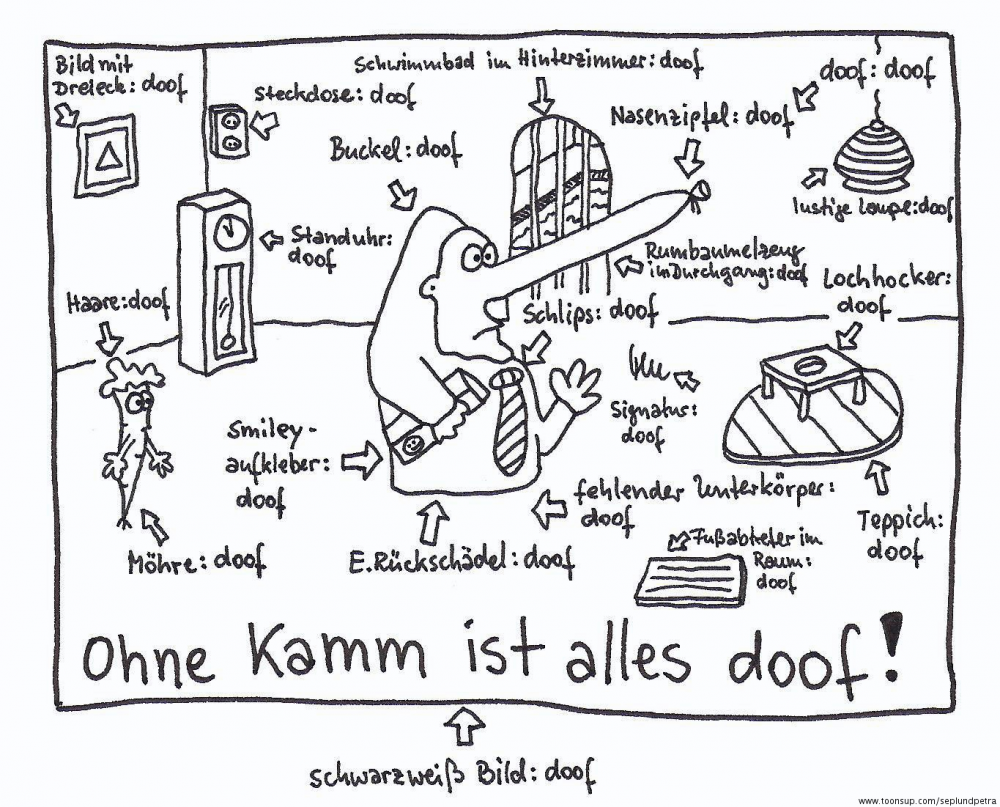 Bild mit
Dreieck: doof
Steckdose: doof
Schwimmbad im Hinterzimmer: doof
doof: doof
Nasenzipfel: doof
Buckel: doof
lustige Lampe: doof
Standuhr:
doof
Rumbaumelzeug
im Durchgang: doof
Lochhocker:
doof
Haare: doof
Schlips: doof
Signatur:
doof
Smiley-
aufkleber:
doof
fehlender Unterkörper:
doof
Teppich:
doof
Möhre: doof
E. Rückschädel: doof
Fußabtreter im
Raum:
doof
Ohne Kamm ist alles doof!
schwarzweiß Bild: doof
www.toonsup.com/seplundpetra